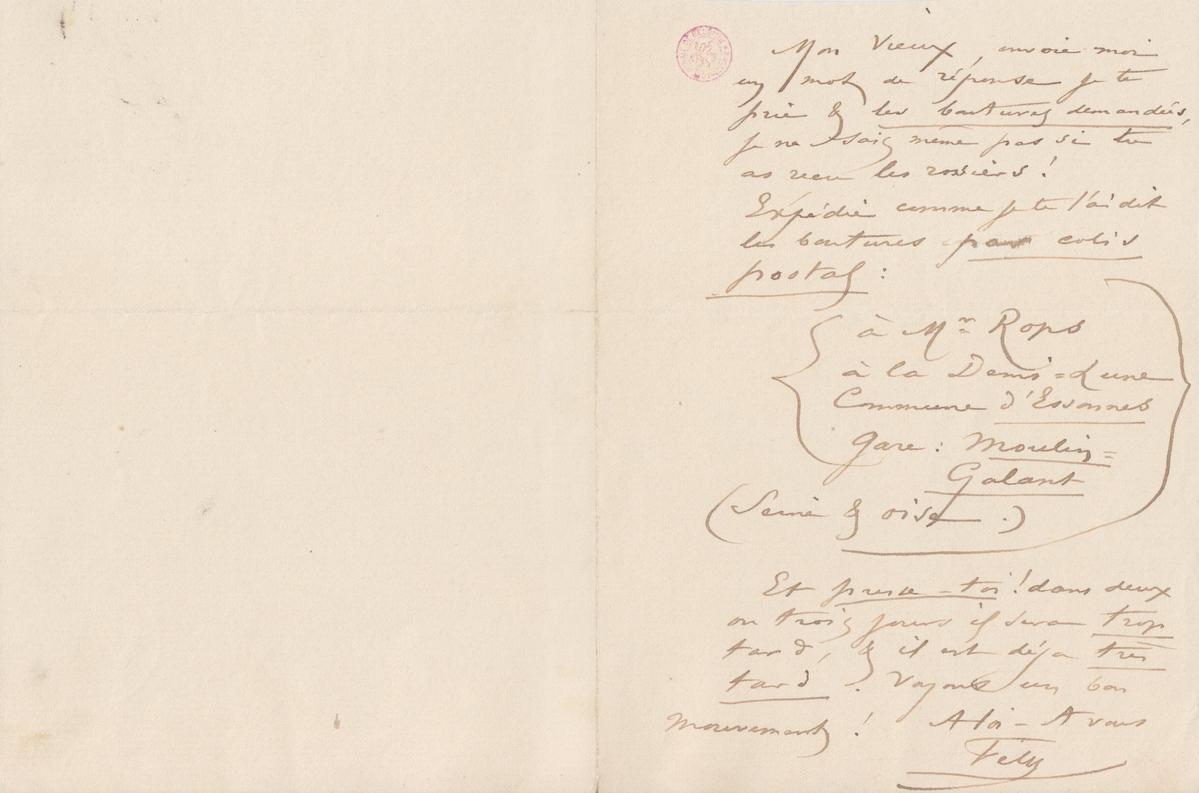 Mon Vieux, envoie moi
un mot de réponse je te
prie & les boutures demandées,
je ne sais même pas si tu
as reçu les rosiers !
Expédie comme je te l'ai dit
les boutures par colis
postal :
à Mr Rops
à la Demi=Lune
Commune d'Essonnes
Gare : Moulin=
Galant
(Seine & oise .)
Et presse-toi ! dans deux
ou trois jours il sera trop
tard, & il est déja très
tard . Voyons un bon
mouvement ! A toi - A vous
Fély